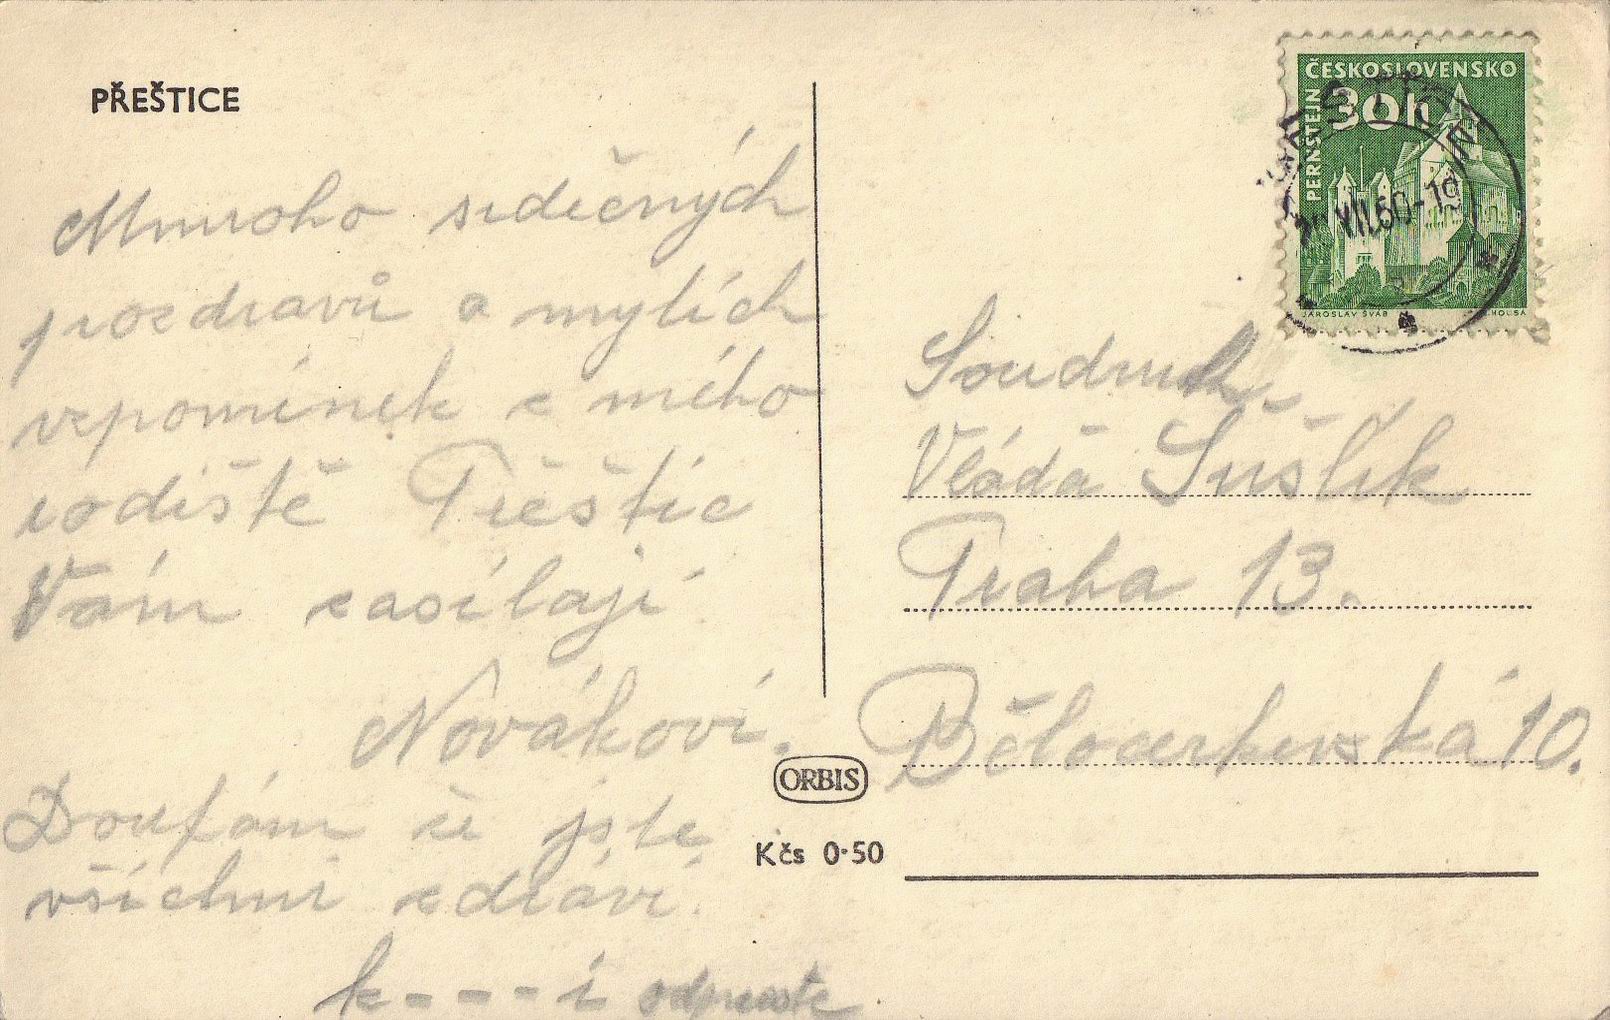 PŘEŠTICE
Mnroho srdečných
pozdravů a mylích
vzpomínek z mého
rodiště Přeštic
Vám zasílají
Novákovi.
Doufám že jste
všichni zdrávi.
k---i odpusťte
ORBIS
Kčs 0·50
ČESKOSLOVENSKO
PERNŠTEJN
30h
JAROSLAV ŠVÁB
HOUSA
VII.60-19
Soudruh
Vláďa Šušlík
Praha 13.
Bělocerkevská 10.